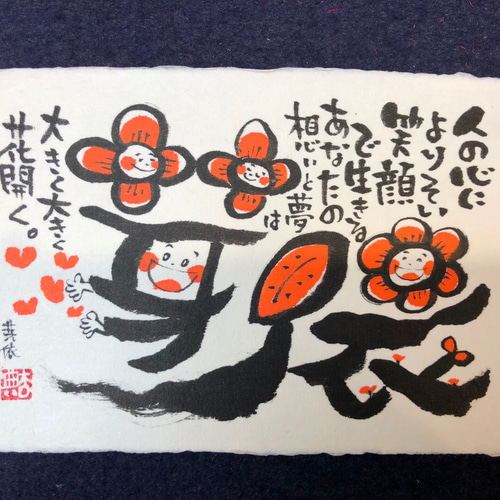 人の心に
よりそい
笑顔
で生きる
あなたの
想いと夢は
大きく大きく
花開く。